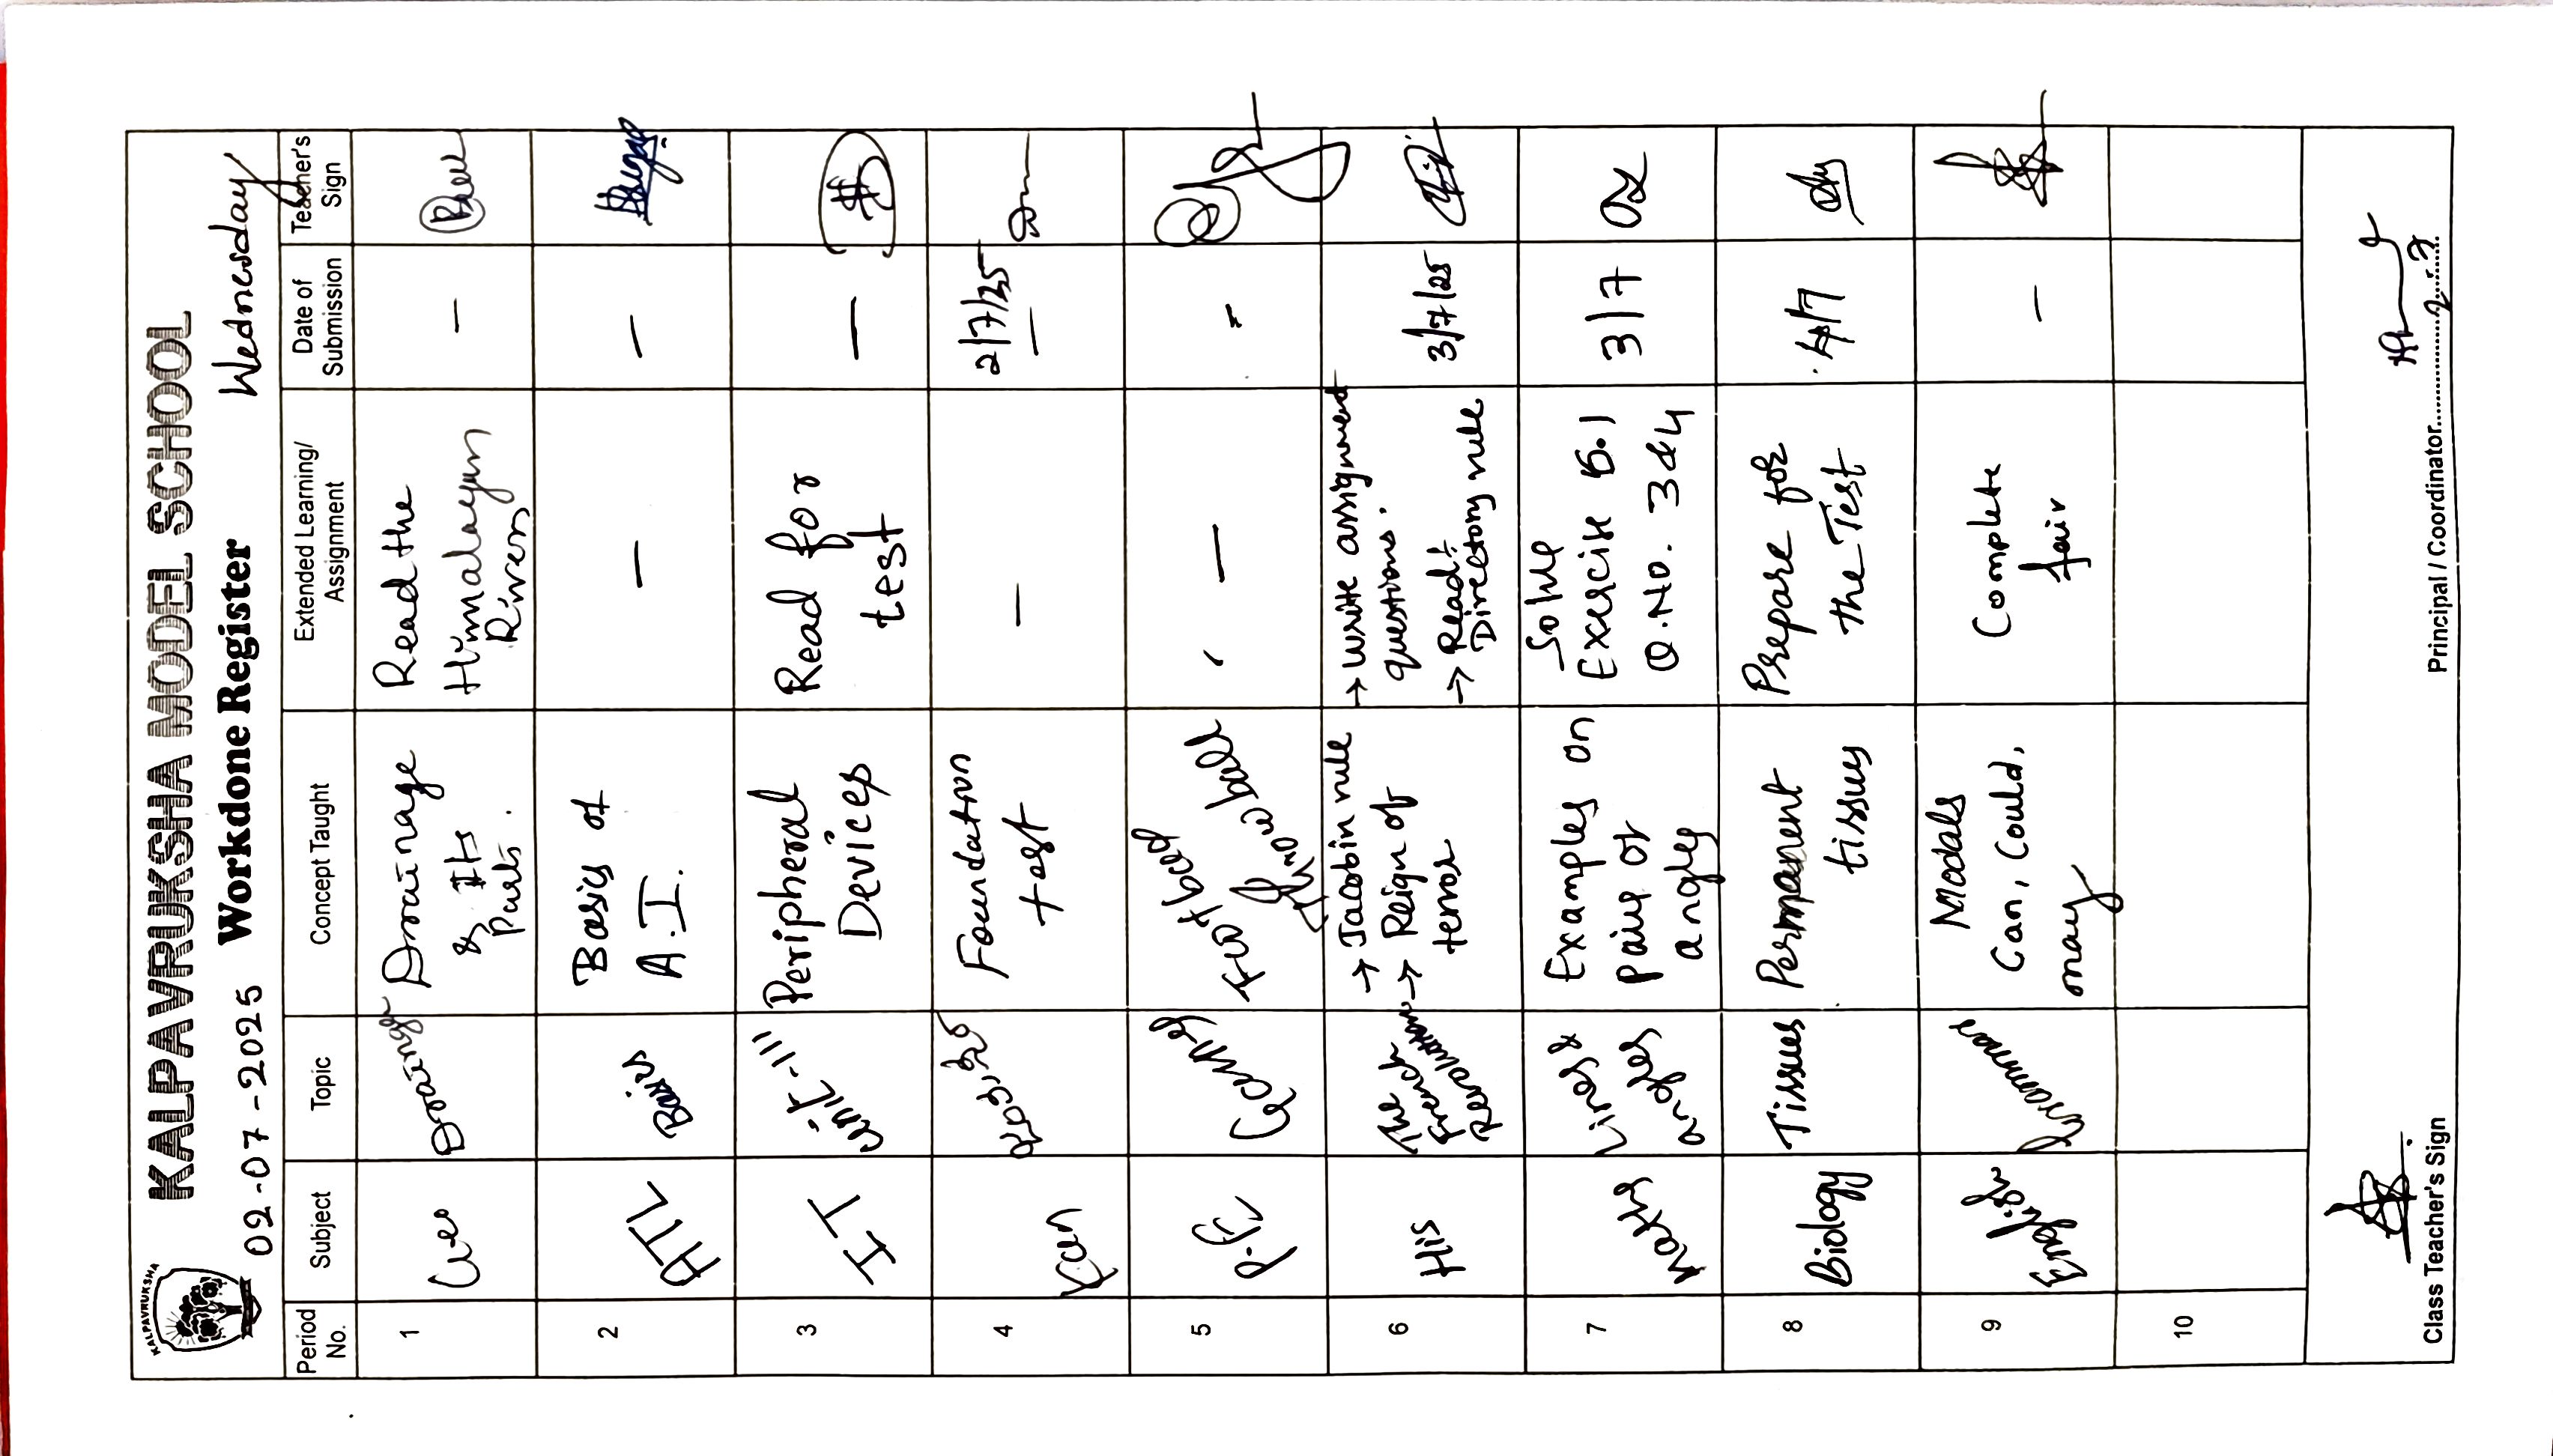 KALPAVRUKSHA
KALPAVRUKSHA MODEL SCHOOL
02-07-2025 Workdone Register Wednesday
Period No. Subject Topic Concept Taught Extended Learning/ Assignment Date of Submission Teacher's Sign
1 Geo Drainage Drainage
& Its
parts.
Read the
Himalayan
Rivers
–
2 ATL Basics Basics of
A.I.
– –
3 IT Unit-III Peripheral
Devices
Read for
test
–
4 Kan Foundation
test
– 2/7/25
–
5 P.E. Games Football
Throwball
–
6 His The
French
Revolution
→ Jacobin rule
→ Reign of
terror
→ write assignment
questions.
→ Read:
Directory rule
3/7/25
7 Maths Lines &
angles
Examples on
pair of
angles
Solve
Exercise 6.1
Q.No. 3&4
3/7
8 Biology Tissues Permanent
tissues
Prepare for
the Test
4/7
9 English Grammar Modals
Can, Could,
may
Complete
fair
–
10
Class Teacher's Sign Principal / Coordinator